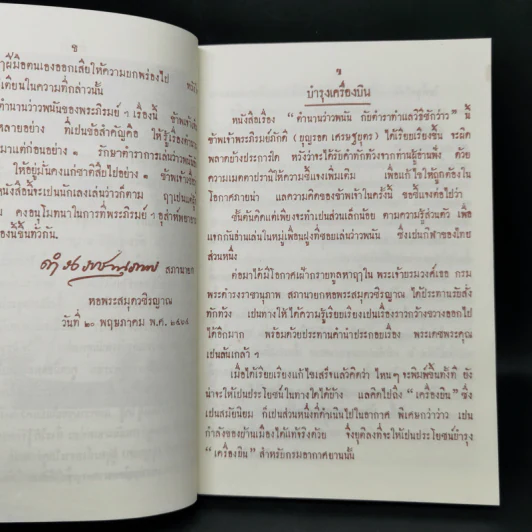 ช
ๆฝีมือตนเองออกเสียให้ความยกพร่องไป
เตียนในความที่กล่าวนั้น
ตำนานว่าวพนันของพระภิรมย์ ฯ เรื่องนี้
หลายอย่าง ที่เป็นข้อสำคัญคือ ให้รู้เรื่อง
มาแต่ก่อนอย่าง ๑ รักษาตำราการเล่นว่าวพนัน
ให้อยู่มั่นคงแก่ชาติสืบไปอย่าง ๑ ข้าพเจ้าเชื่อ
หนังสือนี้จะเป็นนักเลงเล่นว่าวก็ตาม ฤๅเป็นแต่
คงอนุโมทนาในการที่พระภิรมย์ ฯ อุส่าห์พยายาม
องนี้ขึ้นทั่วกัน.
สภานายก
หอพระสมุดวชิรญาณ
วันที่ ๒๐ พฤษภาคม พ.ศ. ๒๔๖๔
บำรุงเครื่องบิน
หนังสือเรื่อง “ ตำนานว่าวพนัน กับตำราทำแลวิธีชักว่าว ” นี้
ข้าพเจ้าพระภิรมย์ภักดี ( บุญรอด เศรษฐบุตร ) ได้เรียบเรียงขึ้น จะผิด
พลาดบ้างประการใด หวังว่าจะได้รับคำทักท้วงจากท่านผู้อ่านฟัง ด้วย
ความเมตตาปรานีให้ความชี้แจงเพิ่มเติม เพื่อแก้ไขให้ถูกต้องใน
โอกาศภายน่า แลความคิดของข้าพเจ้าในครั้งนี้ ขอชี้แจงต่อไปว่า
ชั้นต้นคิดแต่เพียงจะทำเป็นส่วนเล็กน้อย ตามความรู้ส่วนตัว เพื่อ
แจกกันอ่านเล่นในหมู่เพื่อนฝูงที่ชอบเล่นว่าวพนัน ซึ่งเป็นกิฬาของไทย
ส่วนหนึ่ง
ต่อมาได้มีโอกาศเฝ้ากราบทูลหาฤๅใน พระเจ้าบรมวงศ์เธอ กรม
พระดำรงราชานุภาพ สภานายกหอพระสมุดวชิรญาณ ได้ประทานรับสั่ง
ทักท้วง เป็นทางให้ได้ความรู้เรียบเรียงเป็นเรื่องราวกว้างขวางออกไป
ได้อีกมาก พร้อมด้วยประทานคำนำประกอบเรื่อง พระเดชพระคุณ
เป็นล้นเกล้า ฯ
เมื่อได้เรียบเรียงแก้ไขเสร็จแล้วคิดว่า ไหน ๆ จะพิมพ์ขึ้นทั้งที ยัง
น่าจะให้เป็นประโยชน์ในทางใดได้บ้าง แลคิดไปถึง “ เครื่องบิน ” ซึ่ง
เป็นสมัยนิยม ก็เป็นส่วนหนึ่งที่ดำเนินไปในอากาศ พิเศษกว่าว่าว เป็น
กำลังของบ้านเมืองได้แท้จริงด้วย จึงยุติลงที่จะให้เป็นประโยชน์บำรุง
“ เครื่องบิน ” สำหรับกรมอากาศยานนั้น